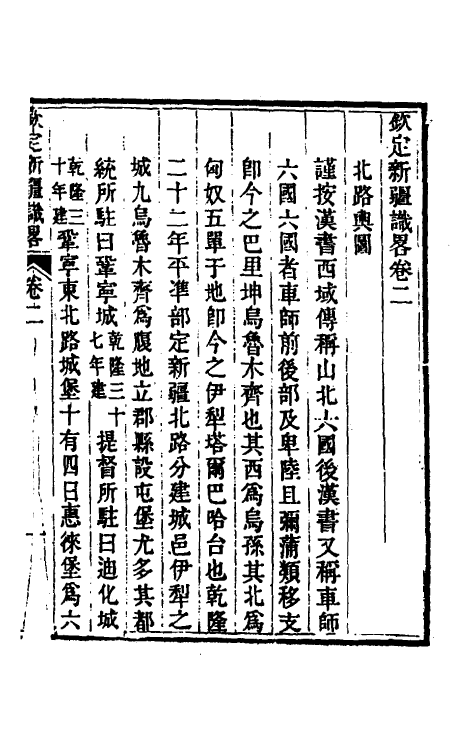 欽定新疆識畧卷二
北路輿圖
謹按漢書西域傳稱山北六國後漢書又稱車師
六國六國者車師前後部及卑陸且彌蒲類移支
卽今之巴里坤烏魯木齊也其西爲烏孫其北爲
匈奴五單于地卽今之伊犁塔爾巴哈台也乾隆
二十二年平準部定新疆北路分建城邑伊犁之
城九烏魯木齊爲腹地立郡縣設屯堡尤多其都
統所駐曰鞏寧城乾隆三十七年建提督所駐曰迪化城
乾隆三十年建鞏寧東北路城堡十有四曰惠徠堡爲六
欽定新疆識畧 卷二